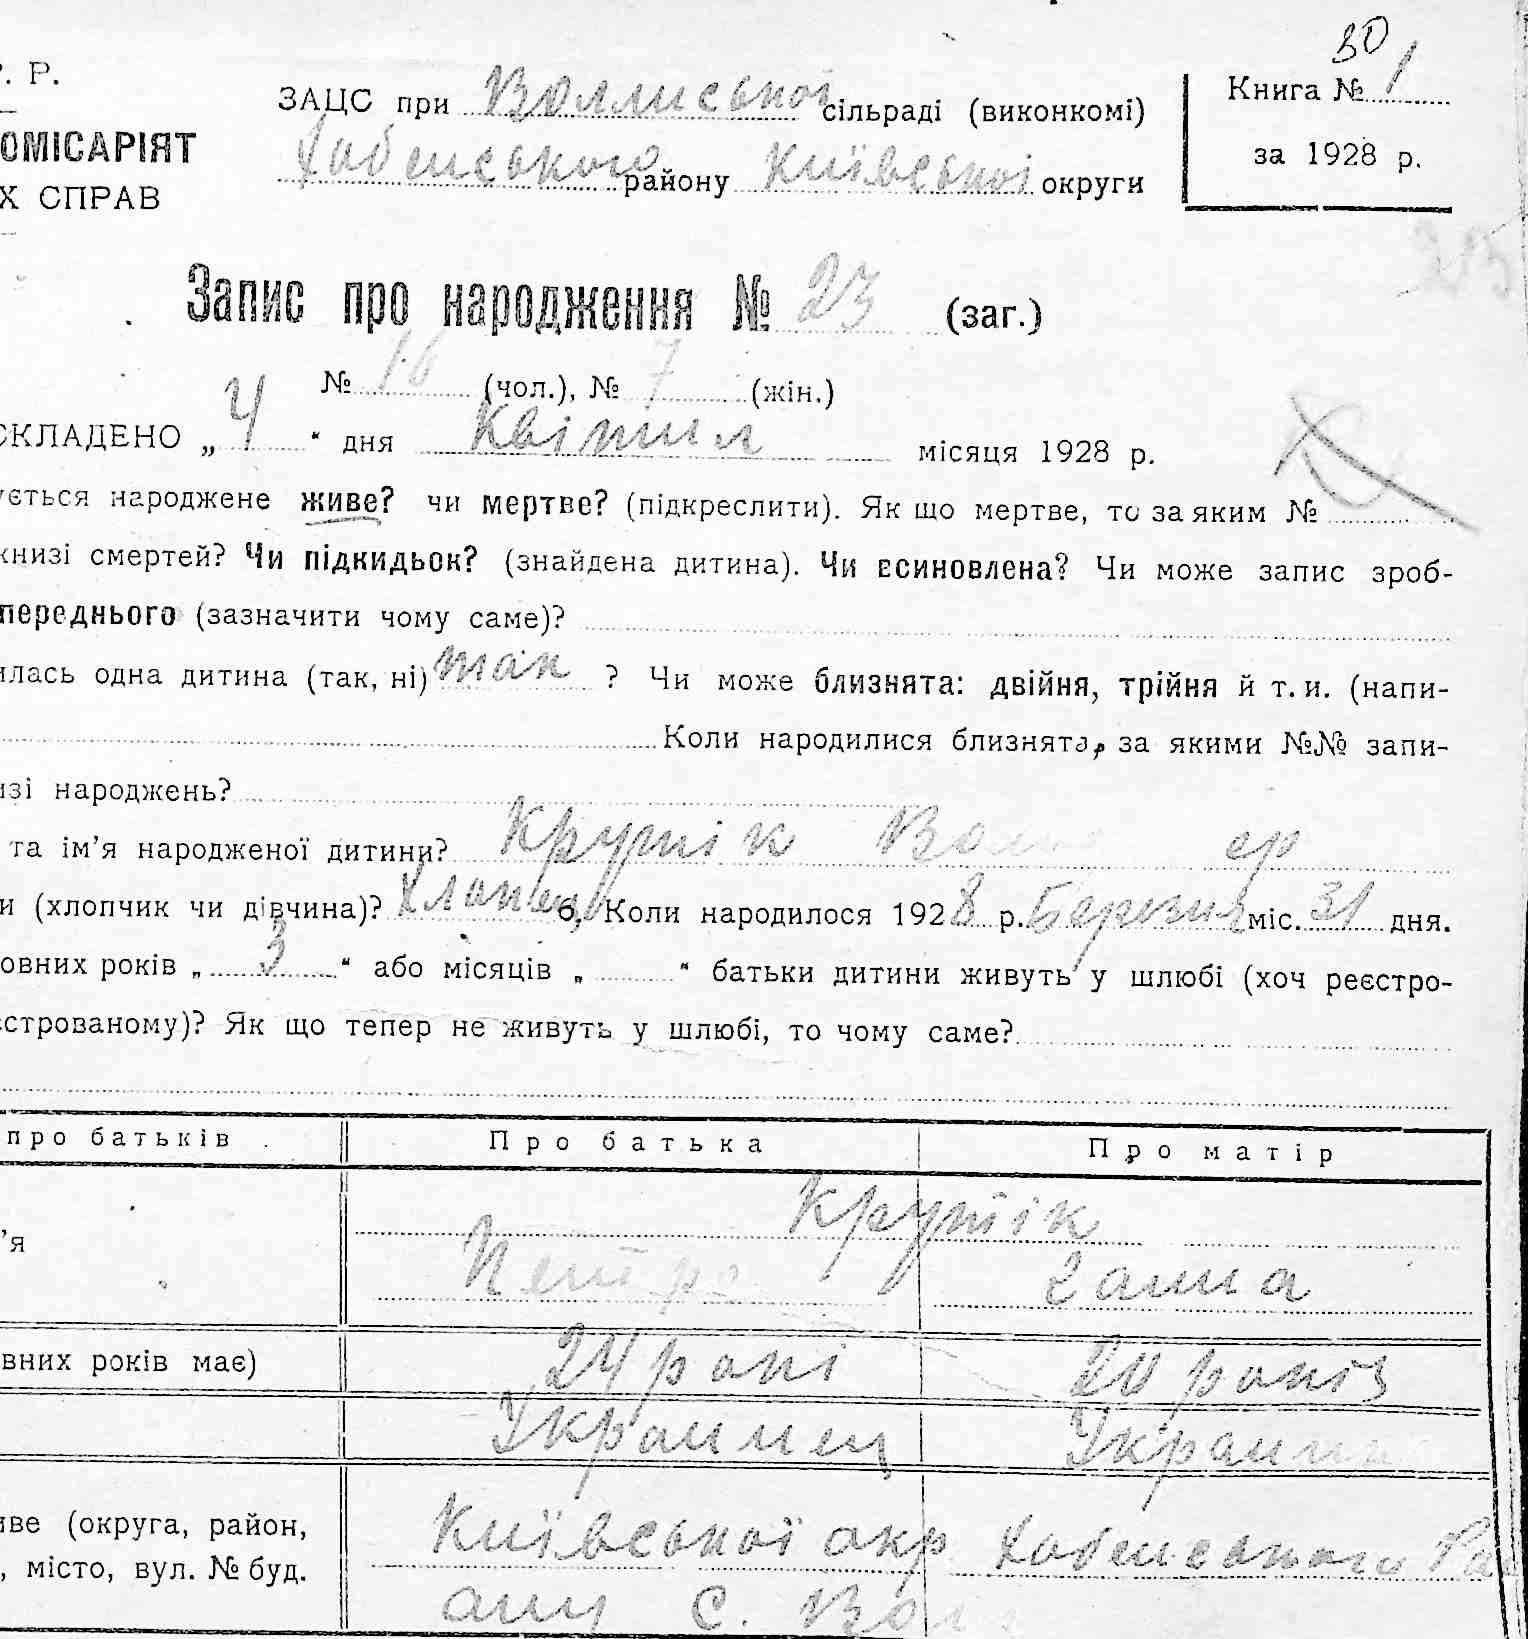 30
. Р.
ЗАЦС при Воллиської сільраді (виконкомі)
Книга № 1
ОМІСАРІЯТ
Хабенського району Київської округи
за 1928 р.
Х СПРАВ
Запис про народження № 23 (заг.)
№ 16 (чол.), № 7 (жін.)
СКЛАДЕНО „ 4 “ дня Квітня місяця 1928 р.
ується народжене живе? чи мертве? (підкреслити). Як що мертве, то за яким №
книзі смертей? Чи підкидьок? (знайдена дитина). Чи всиновлена? Чи може запис зроб-
переднього (зазначити чому саме)?
илась одна дитина (так, ні) так ? Чи може близнята: двійня, трійня й т. и. (напи-
Коли народилися близнята, за якими №№ запи-
изі народжень?
та ім’я народженої дитини? Крупік
и (хлопчик чи дівчина)? Хлопець 6, Коли народилося 1928 р. Березня міс. 31 дня.
овних років „ 3 “ або місяців „ “ батьки дитини живуть у шлюбі (хоч реєстро-
єстрованому)? Як що тепер не живуть у шлюбі, то чому саме?
про батьків
Про батька
Про матір
’я
Крупік
Петро
Ганна
вних років має)
24 роки
20 років
Украинец
Украин
иве (округа, район,
, місто, вул. № буд.
Київської окр Хабенського Ра
ону с.